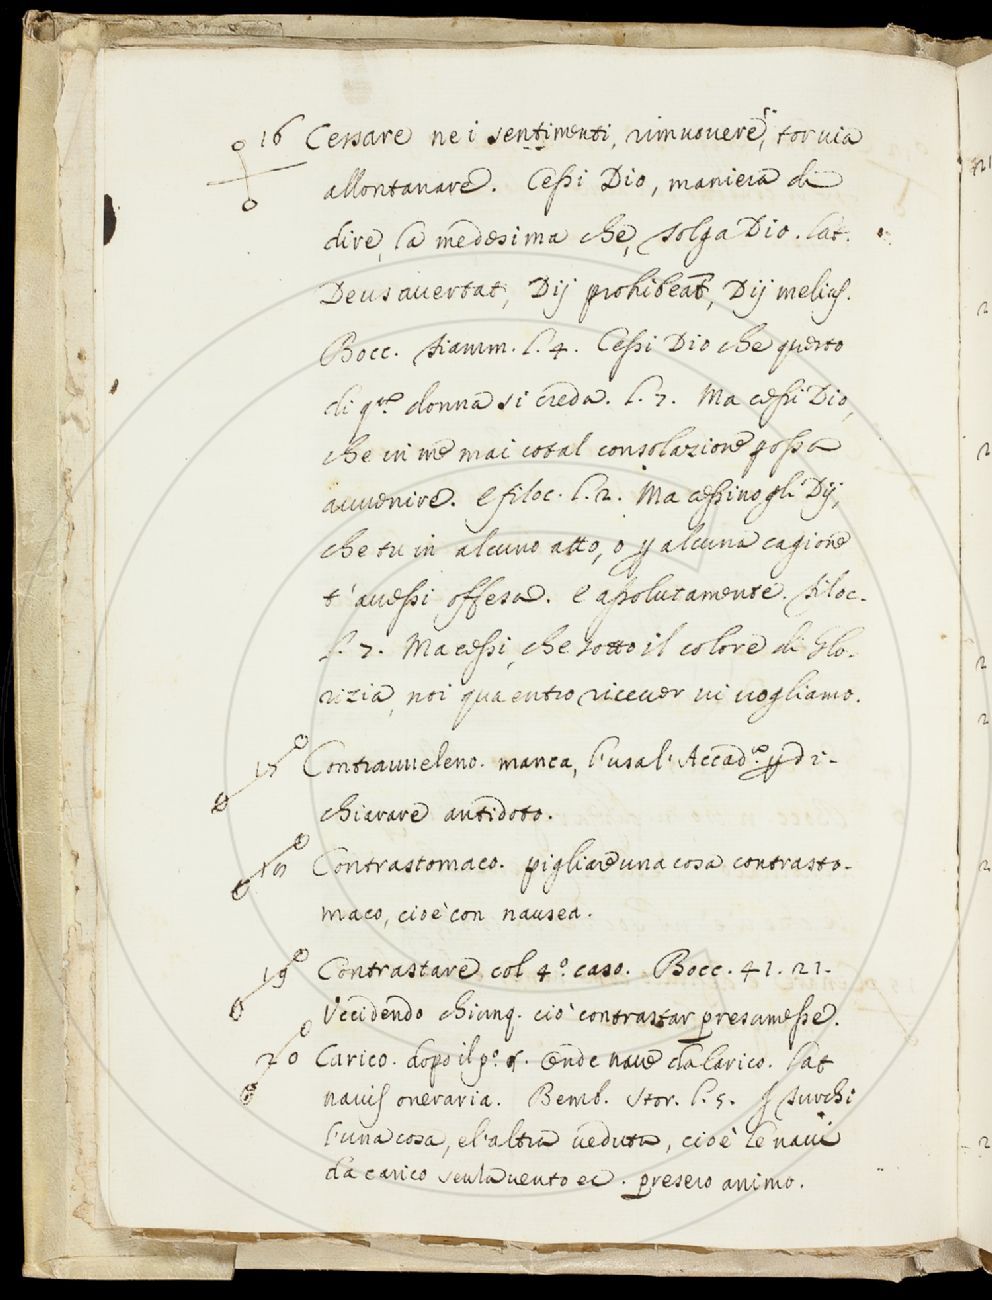 16 Cessare ne i sentimenti, rimuovere, tor uia
allontanare. Cessi Dio, maniera di
dire, la medesima che, tolga Dio. Lat.
Deus auertat, Dij prohibeāt, Dij melius.
Bocc. fiamm. l. 4. Cessi Dio che questo
di q.ta donna si creda. l. 7. Ma cessi Dio,
che in me mai cotal consolazione possa
auuenire. e filoc. l. 2. Ma cessino gli Dij,
che tu in alcuno atto, o p alcuna cagione
t'auessi offesa. e assolutamente. filoc.
l. 7. Ma cessi, che sotto il colore di Glo-
rizia, noi qua entro riceuer ui uogliamo.
17 Contrauueleno. manca, l'usa l'Accad.a p di-
chiarare antidoto.
18 Contrastomaco. pigliare una cosa contrasto-
maco, cioè con nausea.
19 Contrastare col 4.o caso. Bocc. 41. 21.
Vccidendo chiunq. ciò contrastar presumesse.
20 Carico. dopo il p.o §. onde naue da carico. Lat
nauis oneraria. Bemb. stor. l. 5. i Turchi
l'una cosa, e l'altra ueduta, cioè le naui
da carico senza uento ec. presero animo.